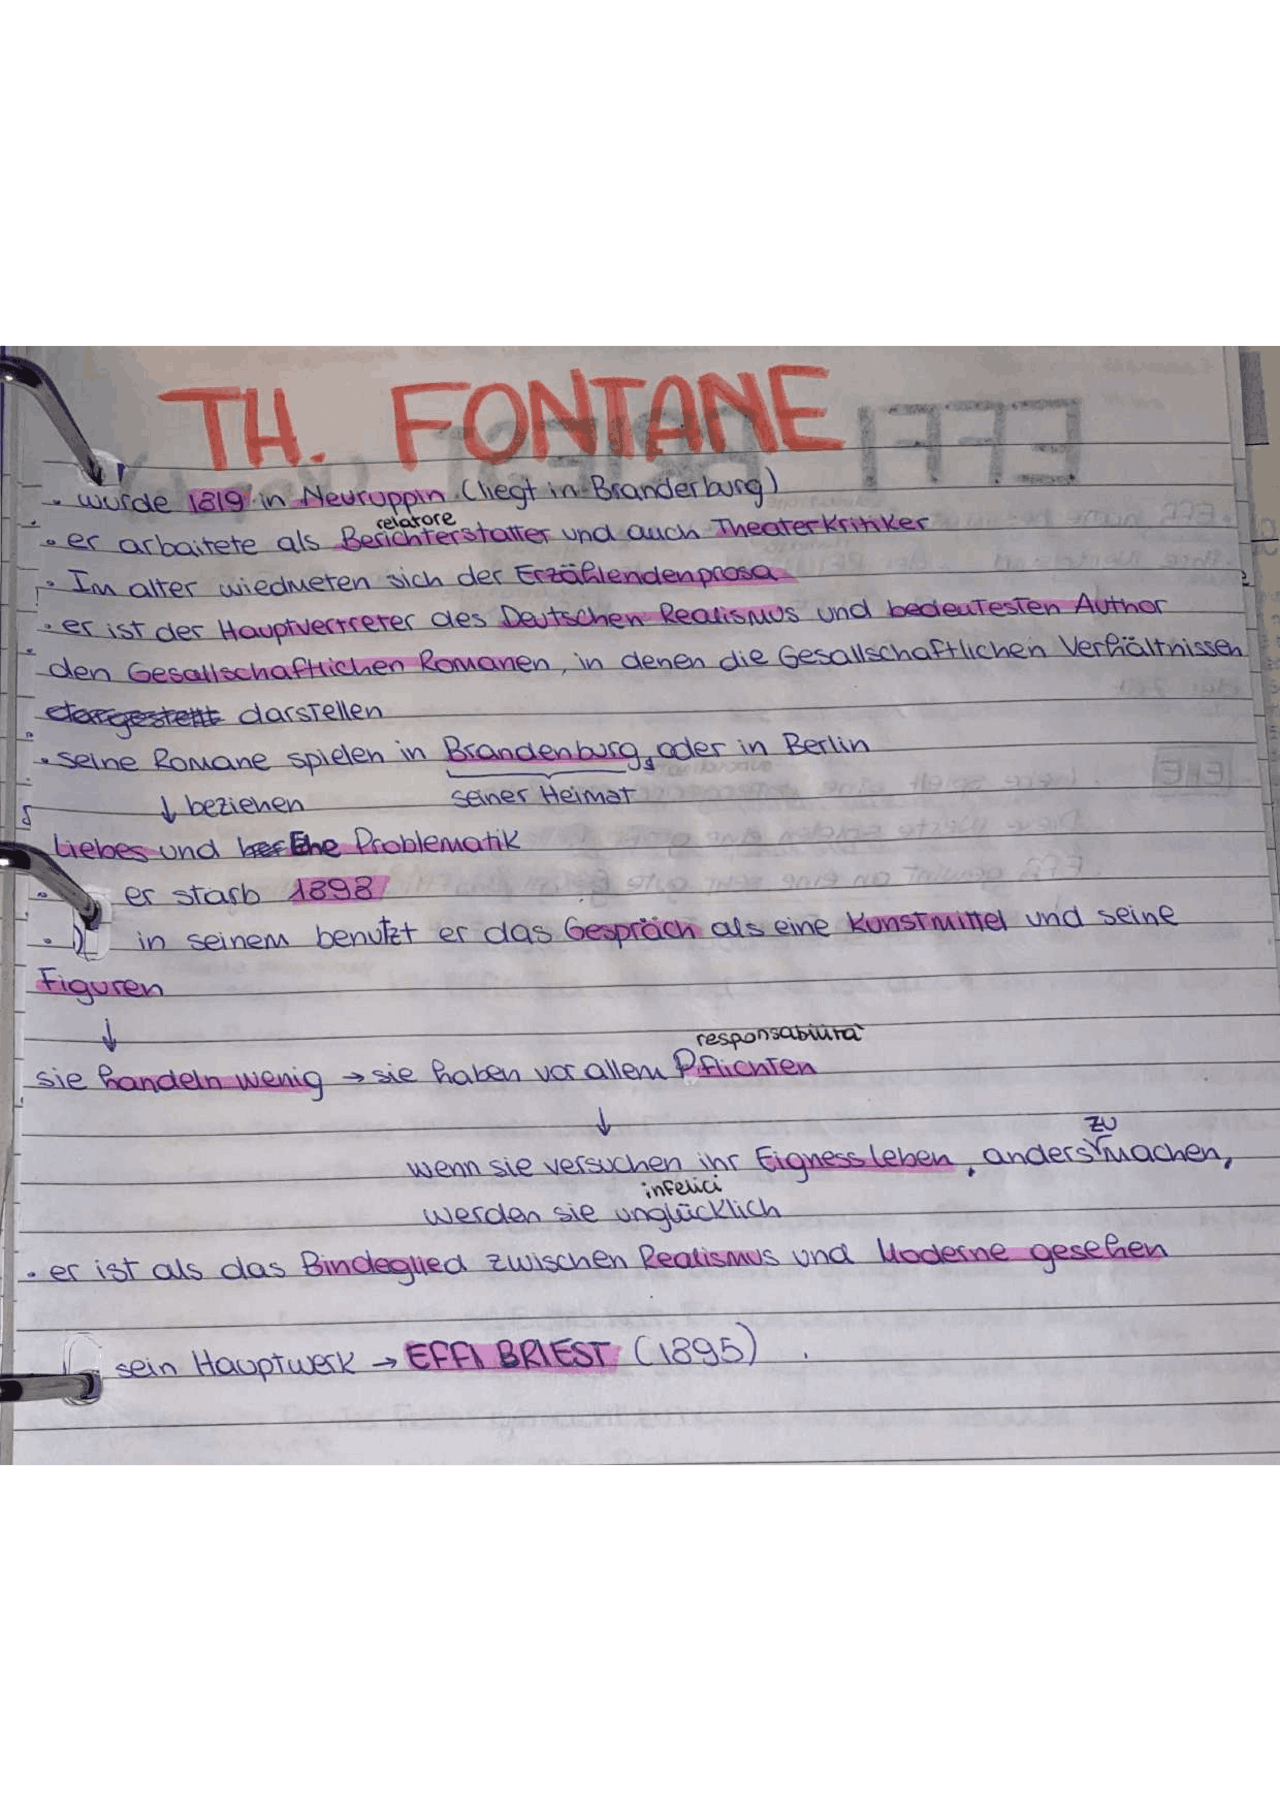 TH. FONTANE
• wurde 1819 in Neuruppin (liegt in Branderburg)
relatore
• er arbaitete als Berichterstatter und auch Theaterkritiker
• Im alter wiedmeten sich der Erzählendenprosa
• er ist der Hauptvertreter des Deutschen Realismus und bedeutesten Author
den Gesallschaftlichen Romanen, in denen die Gesallschaftlichen Verhältnissen
dargestellt darstellen
• seine Romane spielen in Brandenburg, oder in Berlin
↓ beziehen seiner Heimat
Liebes und Ehe Problematik
• er starb 1898
• in seinem benutzt er das Gespräch als eine Kunstmittel und seine
Figuren
↓
responsabilità
sie handeln wenig → sie haben vor allem Pflichten
↓
zu
wenn sie versuchen ihr Eigness leben, anders machen,
infelici
werden sie unglücklich
• er ist als das Bindeglied zwischen Realismus und Moderne gesehen
sein Hauptwerk → EFFI BRIEST (1895)